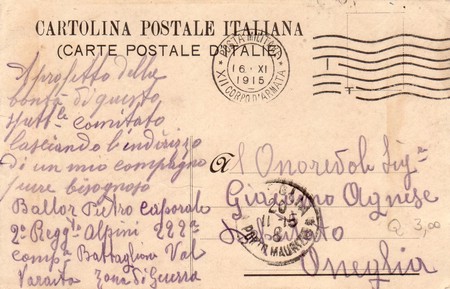 CARTOLINA POSTALE ITALIANA
(CARTE POSTALE D'ITALIE)
POSTA MILITARE
16 · XI
1915
XII CORPO D'ARMATA
Aprofitto della
bontà di questo
comitato
lasciando l'indirizzo
di un mio compagno
pure bisognoso
Ballor Pietro Caporale
2º Regg. Alpini 222ª
Compª Battaglione Val
Varaita Zona di Guerra
a
l'Onorevole Sigª
Giacomo Agnese
Deputato
Oneglia
PORTO MAURIZIO
Q 3,00